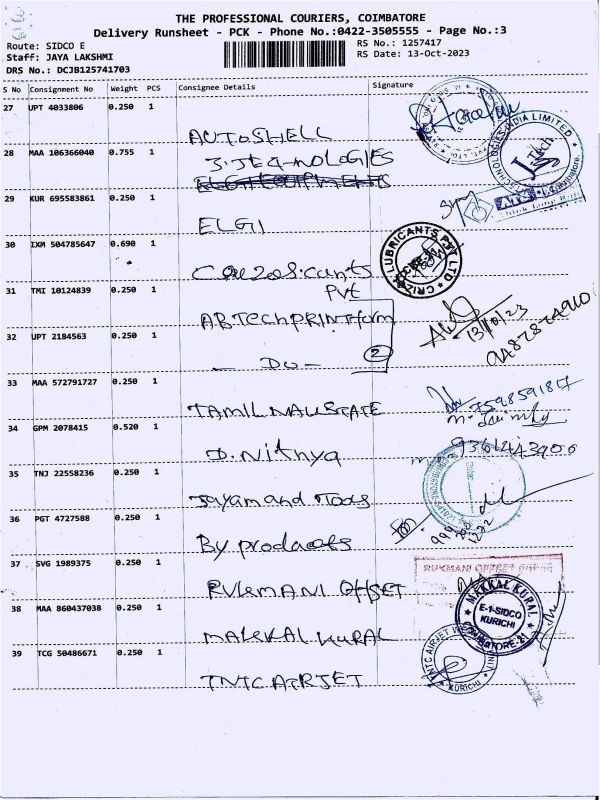 THE PROFESSIONAL COURIERS, COIMBATORE
Delivery Runsheet - PCK - Phone No.:0422-3505555 - Page No.:3
Route: SIDCO E
RS No.: 1257417
Staff: JAYA LAKSHMI
RS Date: 13-Oct-2023
DRS No.: DCJB125741703
S No Consignment No Weight PCS Consignee Details Signature
27 UPT 4033806 0.250 1
AUTOSHELL
28 MAA 106366040 0.755 1
29 KUR 695583861 0.250 1
ELGI
30 IXM 504785647 0.690 1
LUBRICANTS PVT LTD
Pvt
31 TMI 10124839 0.250 1
ABTECHPRINTform
13/10/23
32 UPT 2184563 0.250 1
- Do -
2
33 MAA 572791727 0.250 1
TAMIL NAU STATE
34 GPM 2078415 0.520 1
D. Nithya
9361443906
35 TNJ 22558236 0.250 1
Jayam and Tools
36 PGT 4727588 0.250 1
By products
37 SVG 1989375 0.250 1
RUKMANI OFFSET
RUKMANI OFFSET
38 MAA 860437038 0.250 1
MAKKAL KURAL
MAKKAL KURAL
E-1-SIDCO
KURICHI
COIMBATORE-21
39 TCG 50486671 0.250 1
TNTC AIRJET
TNTC AIRJET
KURICHI